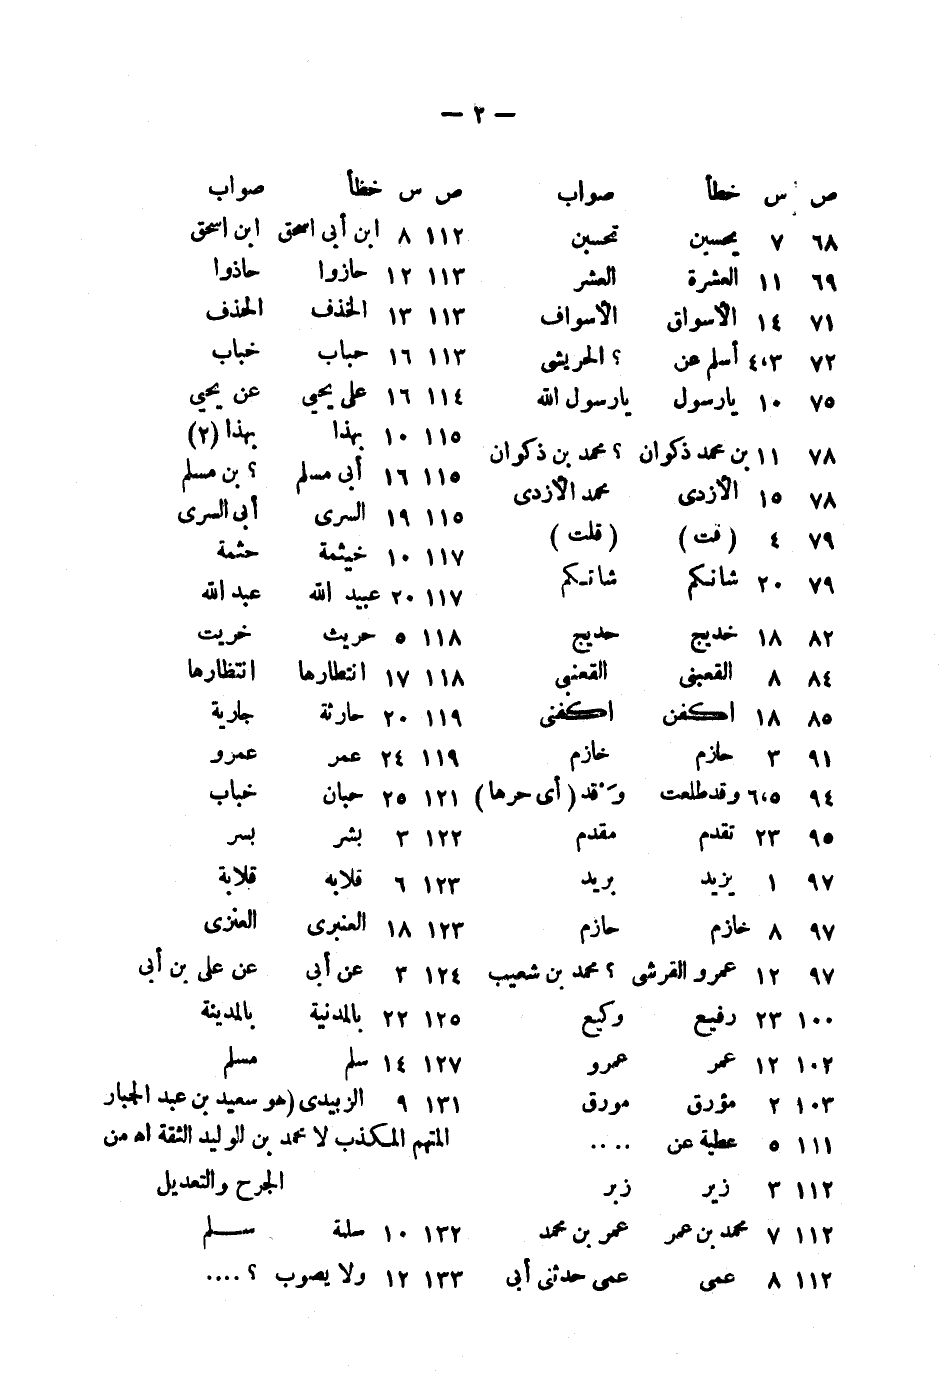 — ٢ —
ص س خطأ صواب
٦٨ ٧ يحسين تحسين
٦٩ ١١ العشرة العشر
٧١ ١٤ الأسواق الأسواف
٧٢ ٤،٣ أسلم عن ؟ الحريشى
٧٥ ١٠ يارسول يارسول الله
٧٨ ١١ بن محمد ذكوان ؟ محمد بن ذكوان
٧٨ ١٥ الأزدى محمد الأزدى
٧٩ ٤ ( قت ) ( قلت )
٧٩ ٢٠
٨٢ ١٨ خديج حديج
٨٤ ٨ القعبنى القعنبى
٨٥ ١٨ اكفن اكفنى
٩١ ٣ حازم خازم
٩٤ ٦،٥ وقدطلعت وَقد ( أى حرها )
٩٥ ٢٣ تقدم مقدم
٩٧ ١ يزيد بريد
٩٧ ٨ خازم حازم
٩٧ ١٢ عمرو القرشى ؟ محمد بن شعيب
١٠٠ ٢٣ رفيع وكيع
١٠٢ ١٢ عمر عمرو
١٠٣ ٢ مؤرق مورق
١١١ ٥ عطية عن ....
١١٢ ٣ زير زبر
١١٢ ٧ محمد بن عمر عمر بن محمد
١١٢ ٨ عمى عمى حدثنى أبى
ص س خطأ صواب
١١٢ ٨ ابن أبى اسحق ابن اسحق
١١٣ ١٢ حازوا حاذوا
١١٣ ١٣ الخذف الحذف
١١٣ ١٦ حباب خباب
١١٤ ١٦ على يحيي عن يحيي
١١٥ ١٠ بهذا بهذا (٢)
١١٥ ١٦ أبى مسلم ؟ بن مسلم
١١٥ ١٩ السرى أبى السرى
١١٧ ١٠ خيثمة حثمة
١١٧ ٢٠ عبيد الله عبد الله
١١٨ ٥ حريث خريت
١١٨ ١٧ انتطارها انتظارها
١١٩ ٢٠ حارثة جارية
١١٩ ٢٤ عمر عمرو
١٢١ ٢٥ حبان خباب
١٢٢ ٣ بشر بسر
١٢٣ ٦ قلابه قلابة
١٢٣ ١٨ العنبرى العنزى
١٢٤ ٣ عن أبى عن على بن أبى
١٢٥ ٢٢ بالمدنية بالمدينة
١٢٧ ١٤ سلم مسلم
١٣١ ٩ الزبيدى (هو سعيد بن عبد الجبار
المتهم المكذب لا محمد بن الوليد الثقة اه من
الجرح والتعديل
١٣٢ ١٠ سلمة سلم
١٣٣ ١٢ ولا يصوب ؟ ....